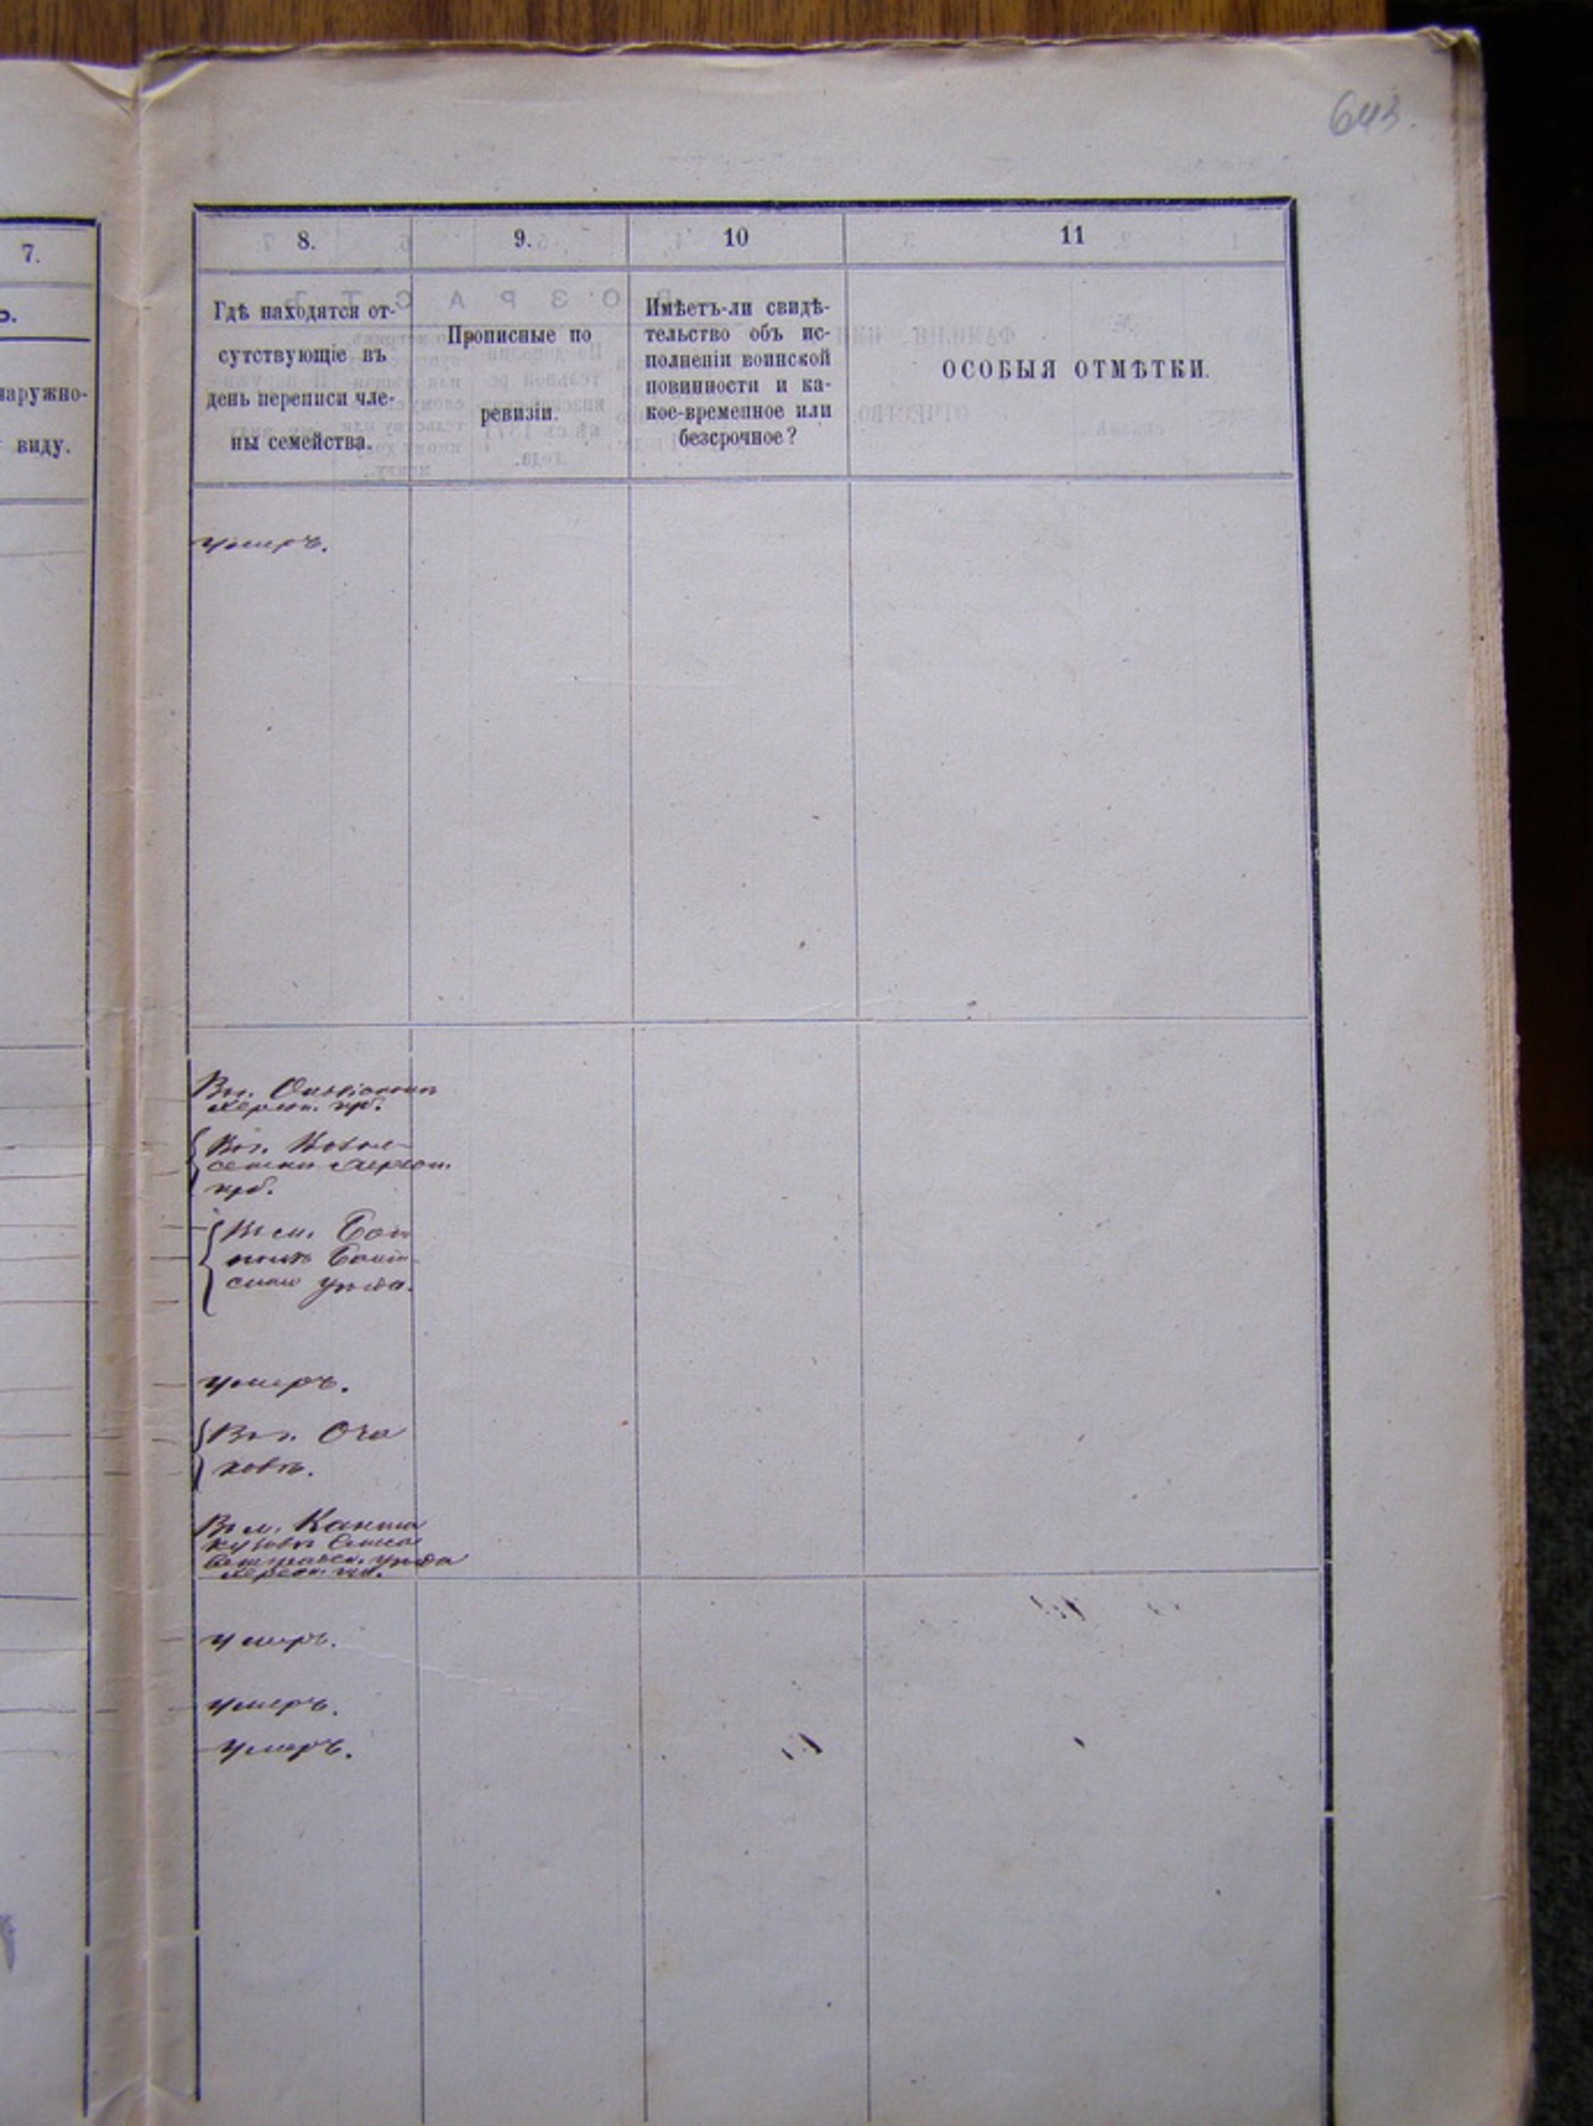 643.
7.
ь.
наружно-
виду.
8.
9.
10
11
Гдѣ находятся от-
сутствующіе въ
день переписи чле-
ны семейства.
Прописные по
ревизіи.
Имѣетъ-ли свидѣ-
тельство объ ис-
полненіи воинской
повинности и ка-
кое-временное или
безсрочное?
ОСОБЫЯ ОТМѢТКИ.
умеръ.
Въ г.
херсон. губ.
Въ г. Новом-
херсон.
губ.
Въ м.
уѣзда.
умеръ.
Въ г. Оча
ковѣ.
Въ м. Канта
кузовѣ Елиса
ветградск. уѣзда
херсон. губ.
умеръ.
умеръ.
умеръ.